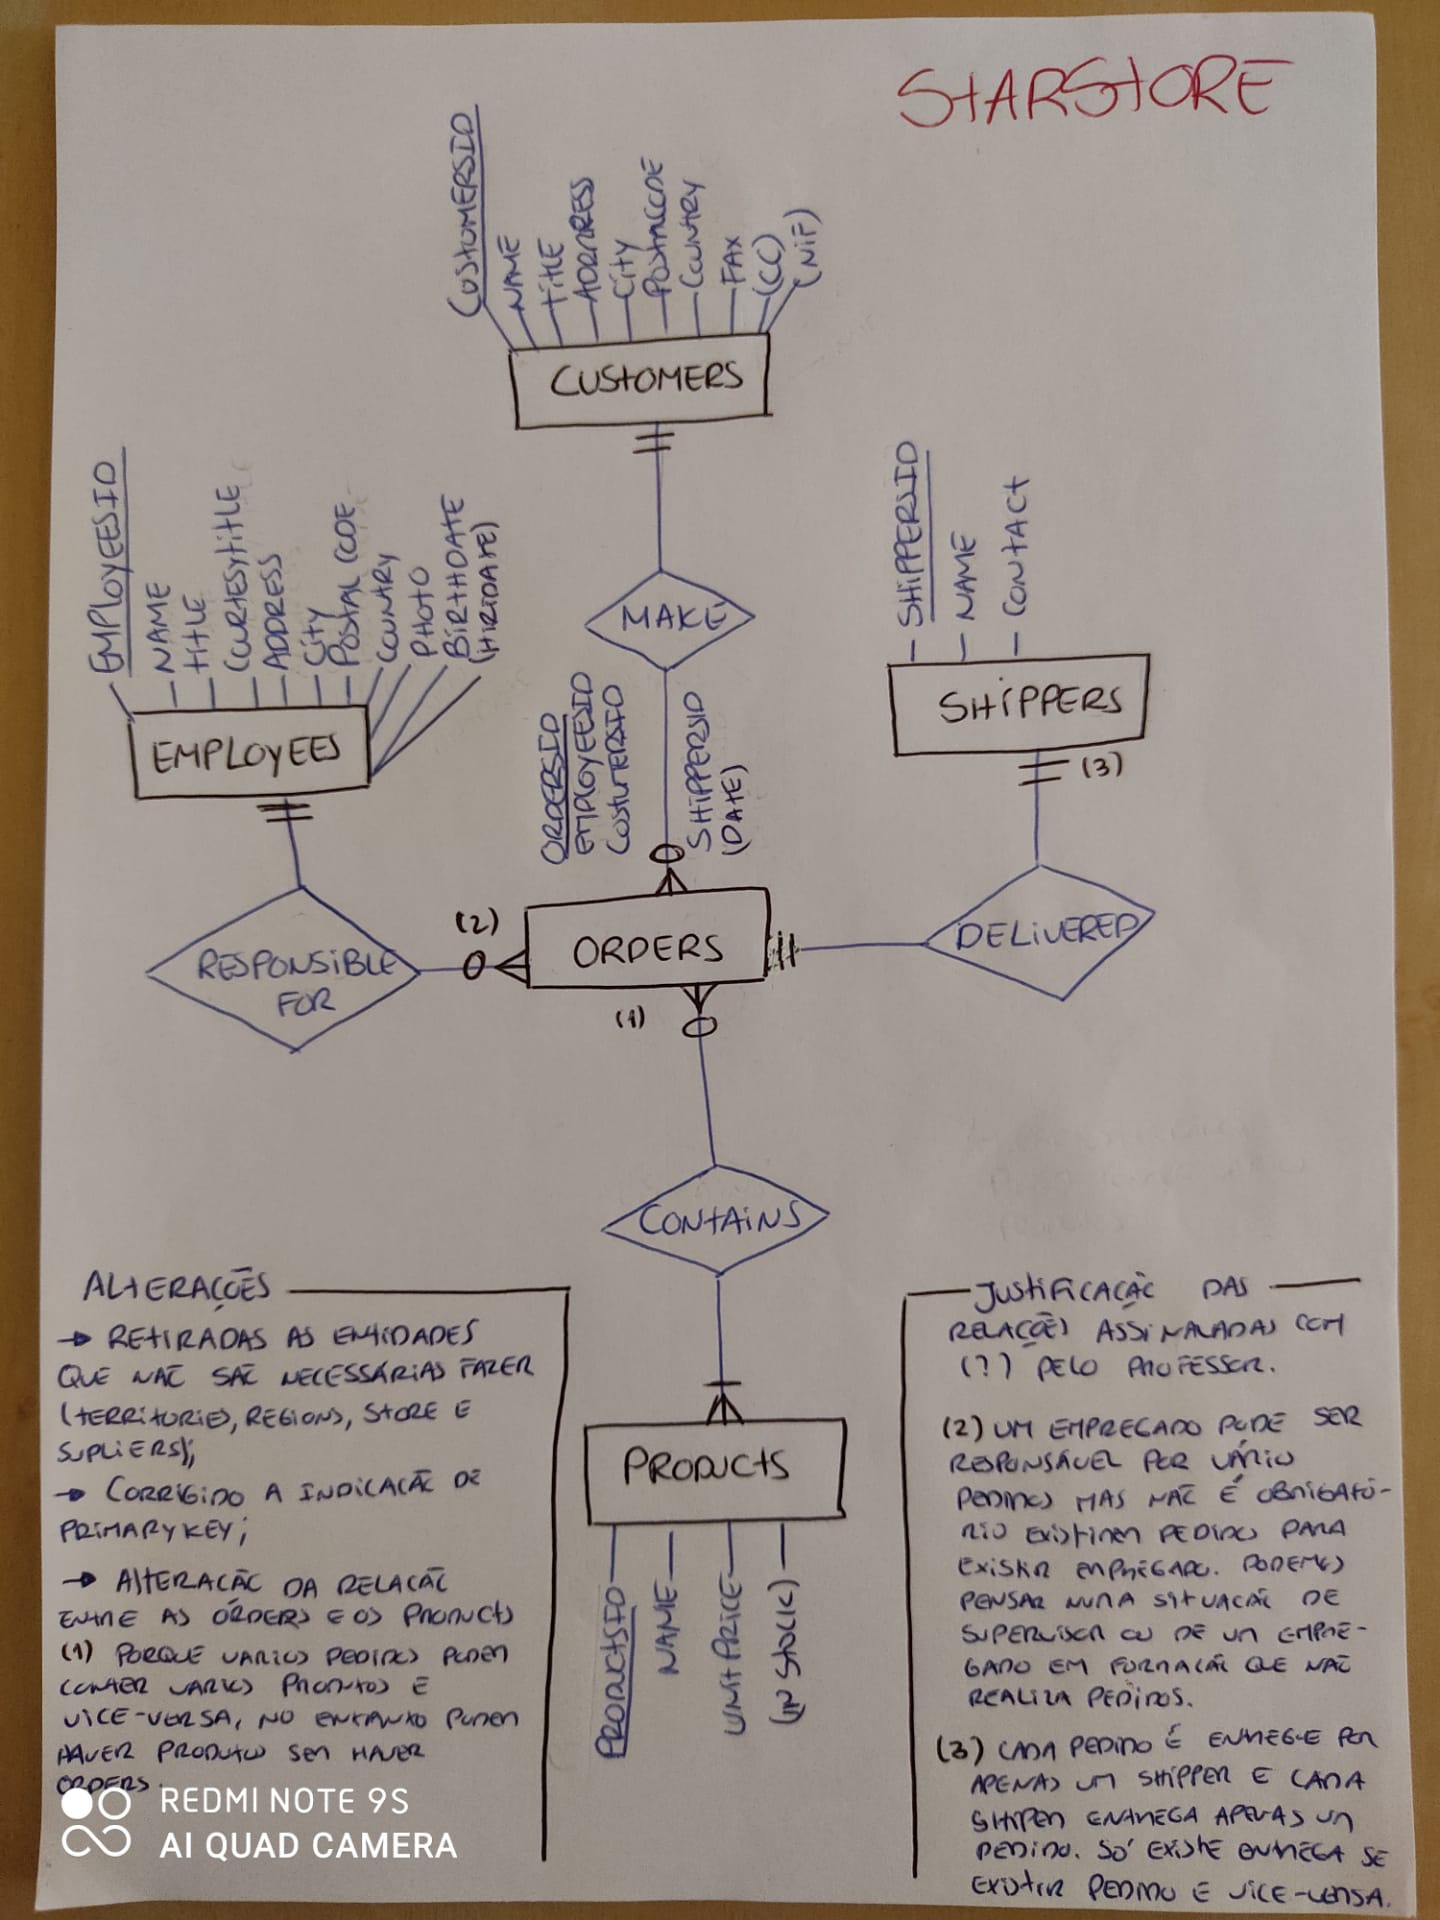 STARSTORE
COSTUMERSID
NAME
TITLE
ADDRRESS
CITY
POSTALCODE
COUNTRY
FAX
(CC)
(NIF)
CUSTOMERS
EMPLOYEESID
NAME
TITLE
COURTESYTITLE
ADDRESS
CITY
POSTAL CODE
COUNTRY
PHOTO
BIRTHDATE
EMPLOYEES
SHIPPERSID
NAME
CONTACT
SHIPPERS
(3)
MAKE
ORDERSID
EMPLOYEESID
SHIPPERSID
(DATE)
RESPONSIBLE
FOR
(2)
ORDERS
(1)
DELIVERED
CONTAINS
PRODUCTS
PRODUCTSID
NAME
UNITPRICE
(IN STOCK)
ALTERAÇÕES
→ RETIRADAS AS ENTIDADES
QUE NÃO SÃO NECESSÁRIAS FAZER
(TERRITORIES, REGIONS, STORE E
SUPLIERS);
→ CORRIGIDO A INDICAÇÃO DE
PRIMARYKEY;
→ ALTERAÇÃO DA RELAÇÃO
ENTRE AS ÓRDERS E OS PRODUCTS
(1) PORQUE VARIOS PEDIDOS PODEM
CONTER VARIOS PRODUTOS E
VICE-VERSA, NO ENTANTO PODEM
HAVER PRODUTOS SEM HAVER
ORDERS.
JUSTIFICAÇÃO DAS
RELAÇÕES ASSINALADAS COM
(?) PELO PROFESSOR.
(2) UM EMPREGADO PODE SER
RESPONSÁVEL POR VÁRIOS
PEDIDOS MAS NÃO É OBRIGATÓ-
RIO EXISTIREM PEDIDOS PARA
EXISTIR EMPREGADO. PODEMOS
PENSAR NUMA SITUAÇÃO DE
SUPERVISOR OU DE UM EMPRE-
GADO EM FORMAÇÃO QUE NÃO
REALIZA PEDIDOS.
(3) CADA PEDIDO É ENTREGUE POR
APENAS UM SHIPPER E CADA
SHIPER ENTREGA APENAS UM
PEDIDO. SÓ EXISTE ENTREGA SE
EXISTIR PEDIDO E VICE-VERSA.
REDMI NOTE 9S
AI QUAD CAMERA